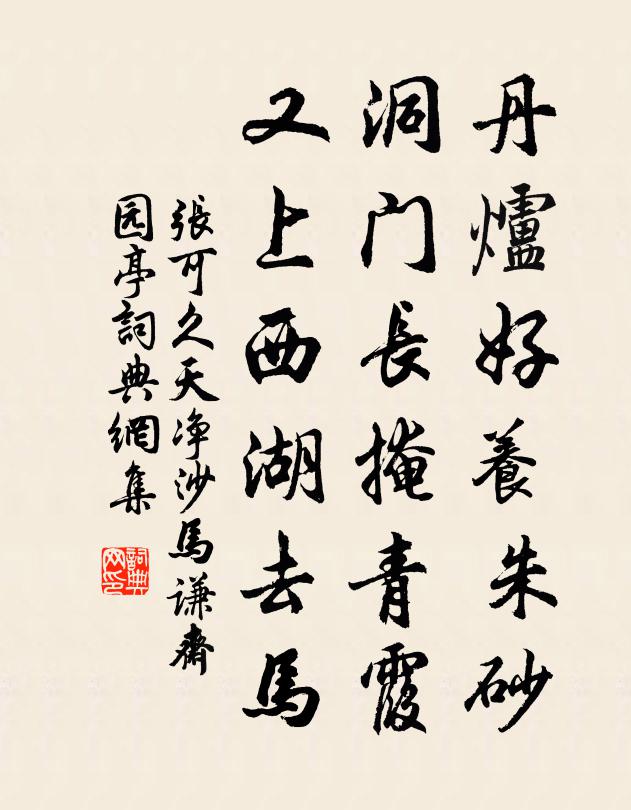 丹爐好養朱砂
洞门長掩青霞
又上西湖去馬
張可久天净沙馬谦齋
园亭詞典網集
詞典
网印